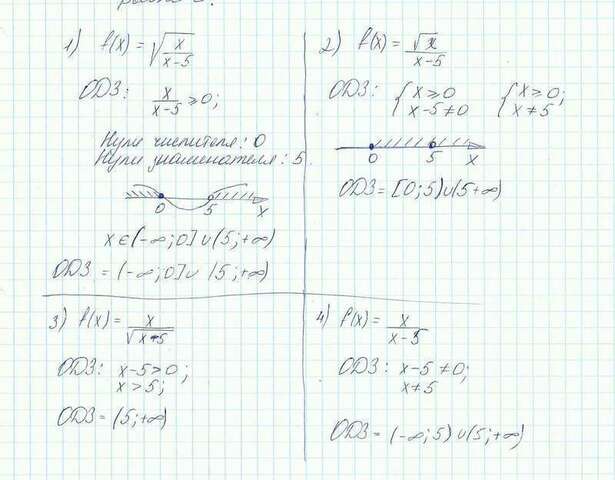 1) f(x) = √(x/(x-5))
ОДЗ: x/(x-5) ≥ 0;
Нули числителя: 0
Нули знаменателя: 5
0 5 x
x ∈ (-∞; 0] ∪ (5; +∞)
ОДЗ = (-∞; 0] ∪ (5; +∞)
2) f(x) = √x/(x-5)
ОДЗ: { x ≥ 0 { x ≥ 0;
x-5 ≠ 0 x ≠ 5;
0 5 x
ОДЗ = [0; 5) ∪ (5 +∞)
3) f(x) = x/√(x-5)
ОДЗ: x-5 > 0;
x > 5;
ОДЗ = (5; +∞)
4) f(x) = x/(x-5)
ОДЗ: x-5 ≠ 0;
x ≠ 5
ОДЗ = (-∞; 5) ∪ (5; +∞)